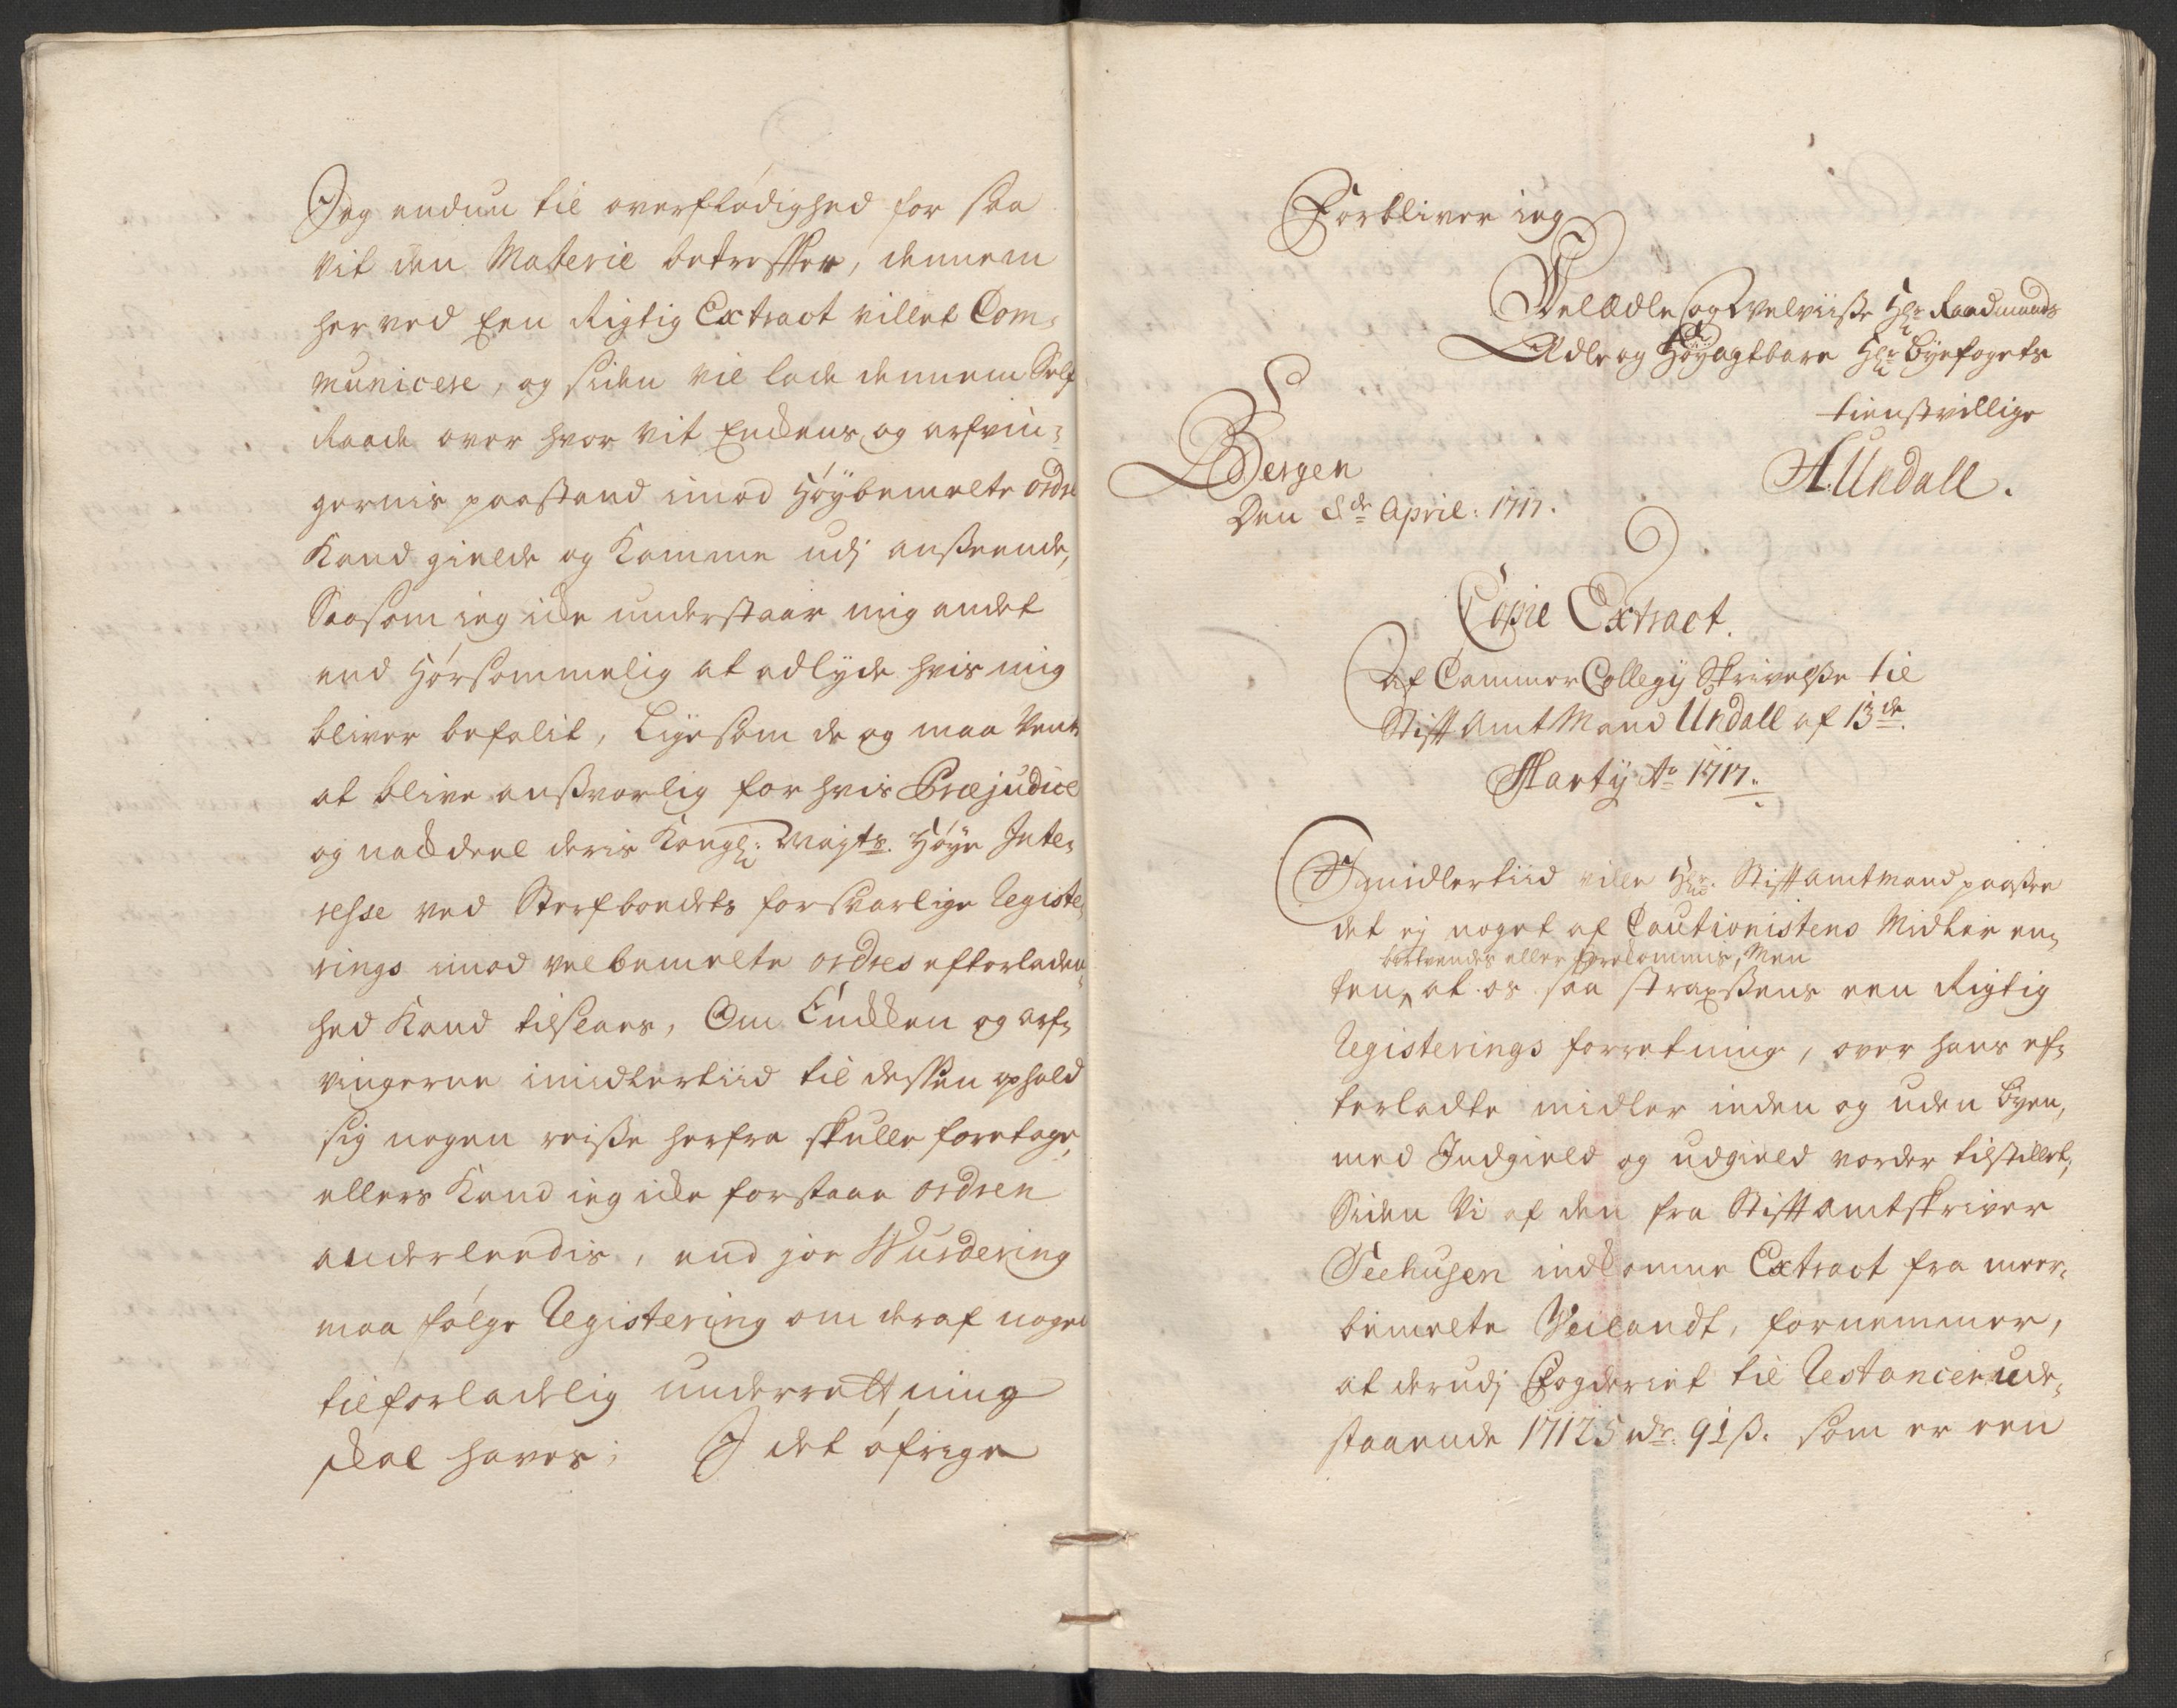 Jeg endnu til overflødighed for saa
vit den Materie betreffer, dennem
her ved Een Rigtig Extract villet Com-
municere, og siden vil lade dennem Self
Raade over hvor vit Enckens og arfvin-
gernis paastand imod Høybemelte ordre
Kand gielde og komme udj anseende,
Saasom ieg icke understaar mig andet
end Hørsommelig at adlyde hvis mig
bliver befalit, Ligesom de og maa vente
at blive ansvarlig for hvis Præjudice
og nackdeel deris Kongl: Mayts. Høye Inte-
resse ved Sterfboedets forsvarlige Registe-
rings imod velbemelte ordres efterladen-
hed Kand tilfeaes, Om Encken og arf-
vingerne imidlertiid til dessen ophold
sig nogen reise herfra skulle foretage,
ellers Kand ieg icke forstaae ordren
anderleedis, end jo Wurdering
maa følge Registering om deraf noged
tilforladelig underrettning
skal haves; I det øfrige
Forbliver ieg
Velædle og Velviise Hr. Raadmands
Ædle og Høyagtbare Hr. Byefogets
tienstvillige
A. Undall.
Bergen
Den 8de April: 1717.
Copie Extract.
Af Cammer Collegij Skrivelse til
Stiftamtmand Undall af 13de
Martij Ao 1717.
Imidlertiid ville Hr. Stiftamtmand paasee
det ej noget af Cautionistens Midler en-
bortvendes eller forkommis, Men
ten, at os saa strax sens een Rigtig
Registerings forretning, over hans ef-
terladte midler inden og uden Byen,
med Indgield og udgield vorder tilstillet,
Siden Vi af den fra Stiftamtskriver
Seehusen indkomne Extract fra meer-
bemelte Weilandt, fornemmer,
at derudj Fogderiet til Restancer ude-
staaende 17125 rdr. 91 ß. som er een